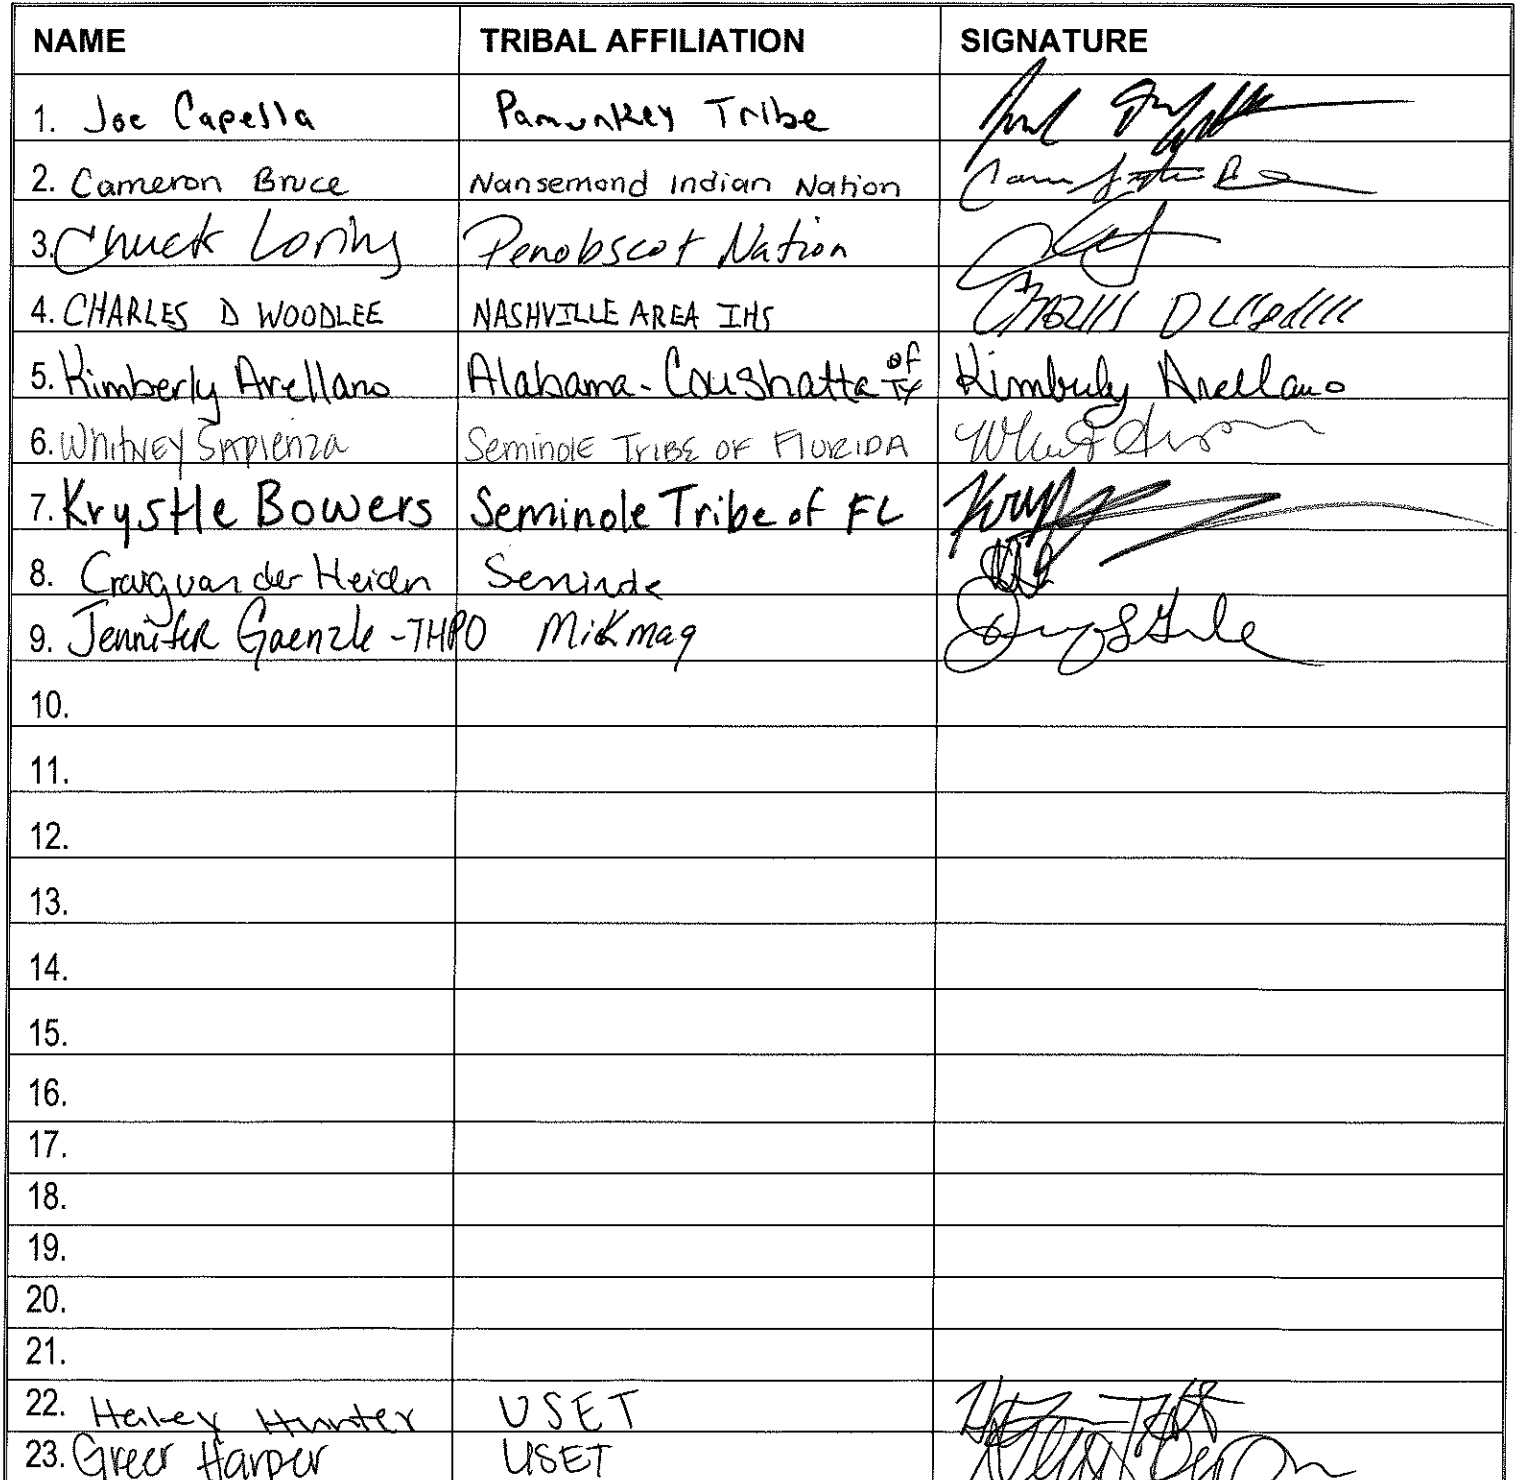 NAME TRIBAL AFFILIATION SIGNATURE
1. Joe Capella Pamunkey Tribe
2. Cameron Bruce Nansemond Indian Nation
3. Chuck Loring Penobscot Nation
4. CHARLES D WOODLEE NASHVILLE AREA IHS
5. Kimberly Arellano Alabama-Coushatta of TX Kimberly Arellano
6. Whitney Sapienza Seminole Tribe of Florida
7. Krystle Bowers Seminole Tribe of FL
8. Craig van der Heiden Seminole
9. Jennifer Gaenzle - THPO Mickmaq
10.
11.
12.
13.
14.
15.
16.
17.
18.
19.
20.
21.
22. Hailey Hunter USET
23. Greer Harper USET